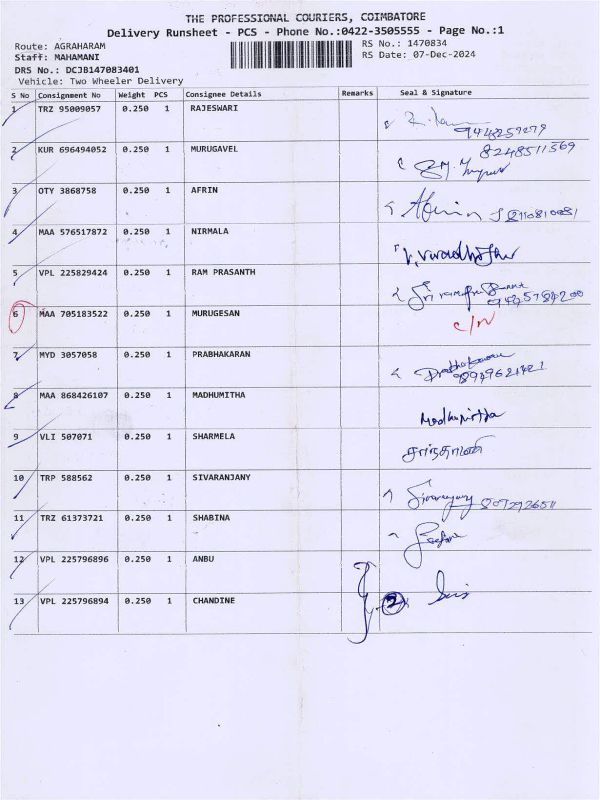 THE PROFESSIONAL COURIERS, COIMBATORE
Delivery Runsheet - PCS - Phone No.:0422-3505555 - Page No.:1
Route: AGRAHARAM RS No.: 1470834
Staff: MAHAMANI RS Date: 07-Dec-2024
DRS No.: DCJB147083401
Vehicle: Two Wheeler Delivery
S No Consignment No Weight PCS Consignee Details Remarks Seal & Signature
1 TRZ 95009057 0.250 1 RAJESWARI
2 KUR 696494052 0.250 1 MURUGAVEL
8248511369
3 OTY 3868758 0.250 1 AFRIN Afrin
4 MAA 576517872 0.250 1 NIRMALA
5 VPL 225829424 0.250 1 RAM PRASANTH
6 MAA 705183522 0.250 1 MURUGESAN C/N
7 MYD 3057058 0.250 1 PRABHAKARAN Prabhakaran
8 MAA 868426107 0.250 1 MADHUMITHA Madhumitha
9 VLI 507071 0.250 1 SHARMELA சாந்தாமணி
10 TRP 588562 0.250 1 SIVARANJANY
11 TRZ 61373721 0.250 1 SHABINA
12 VPL 225796896 0.250 1 ANBU
13 VPL 225796894 0.250 1 CHANDINE 2